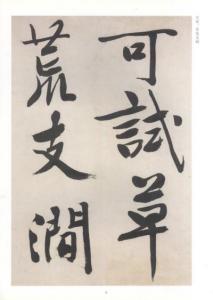 可試草
荒支澗